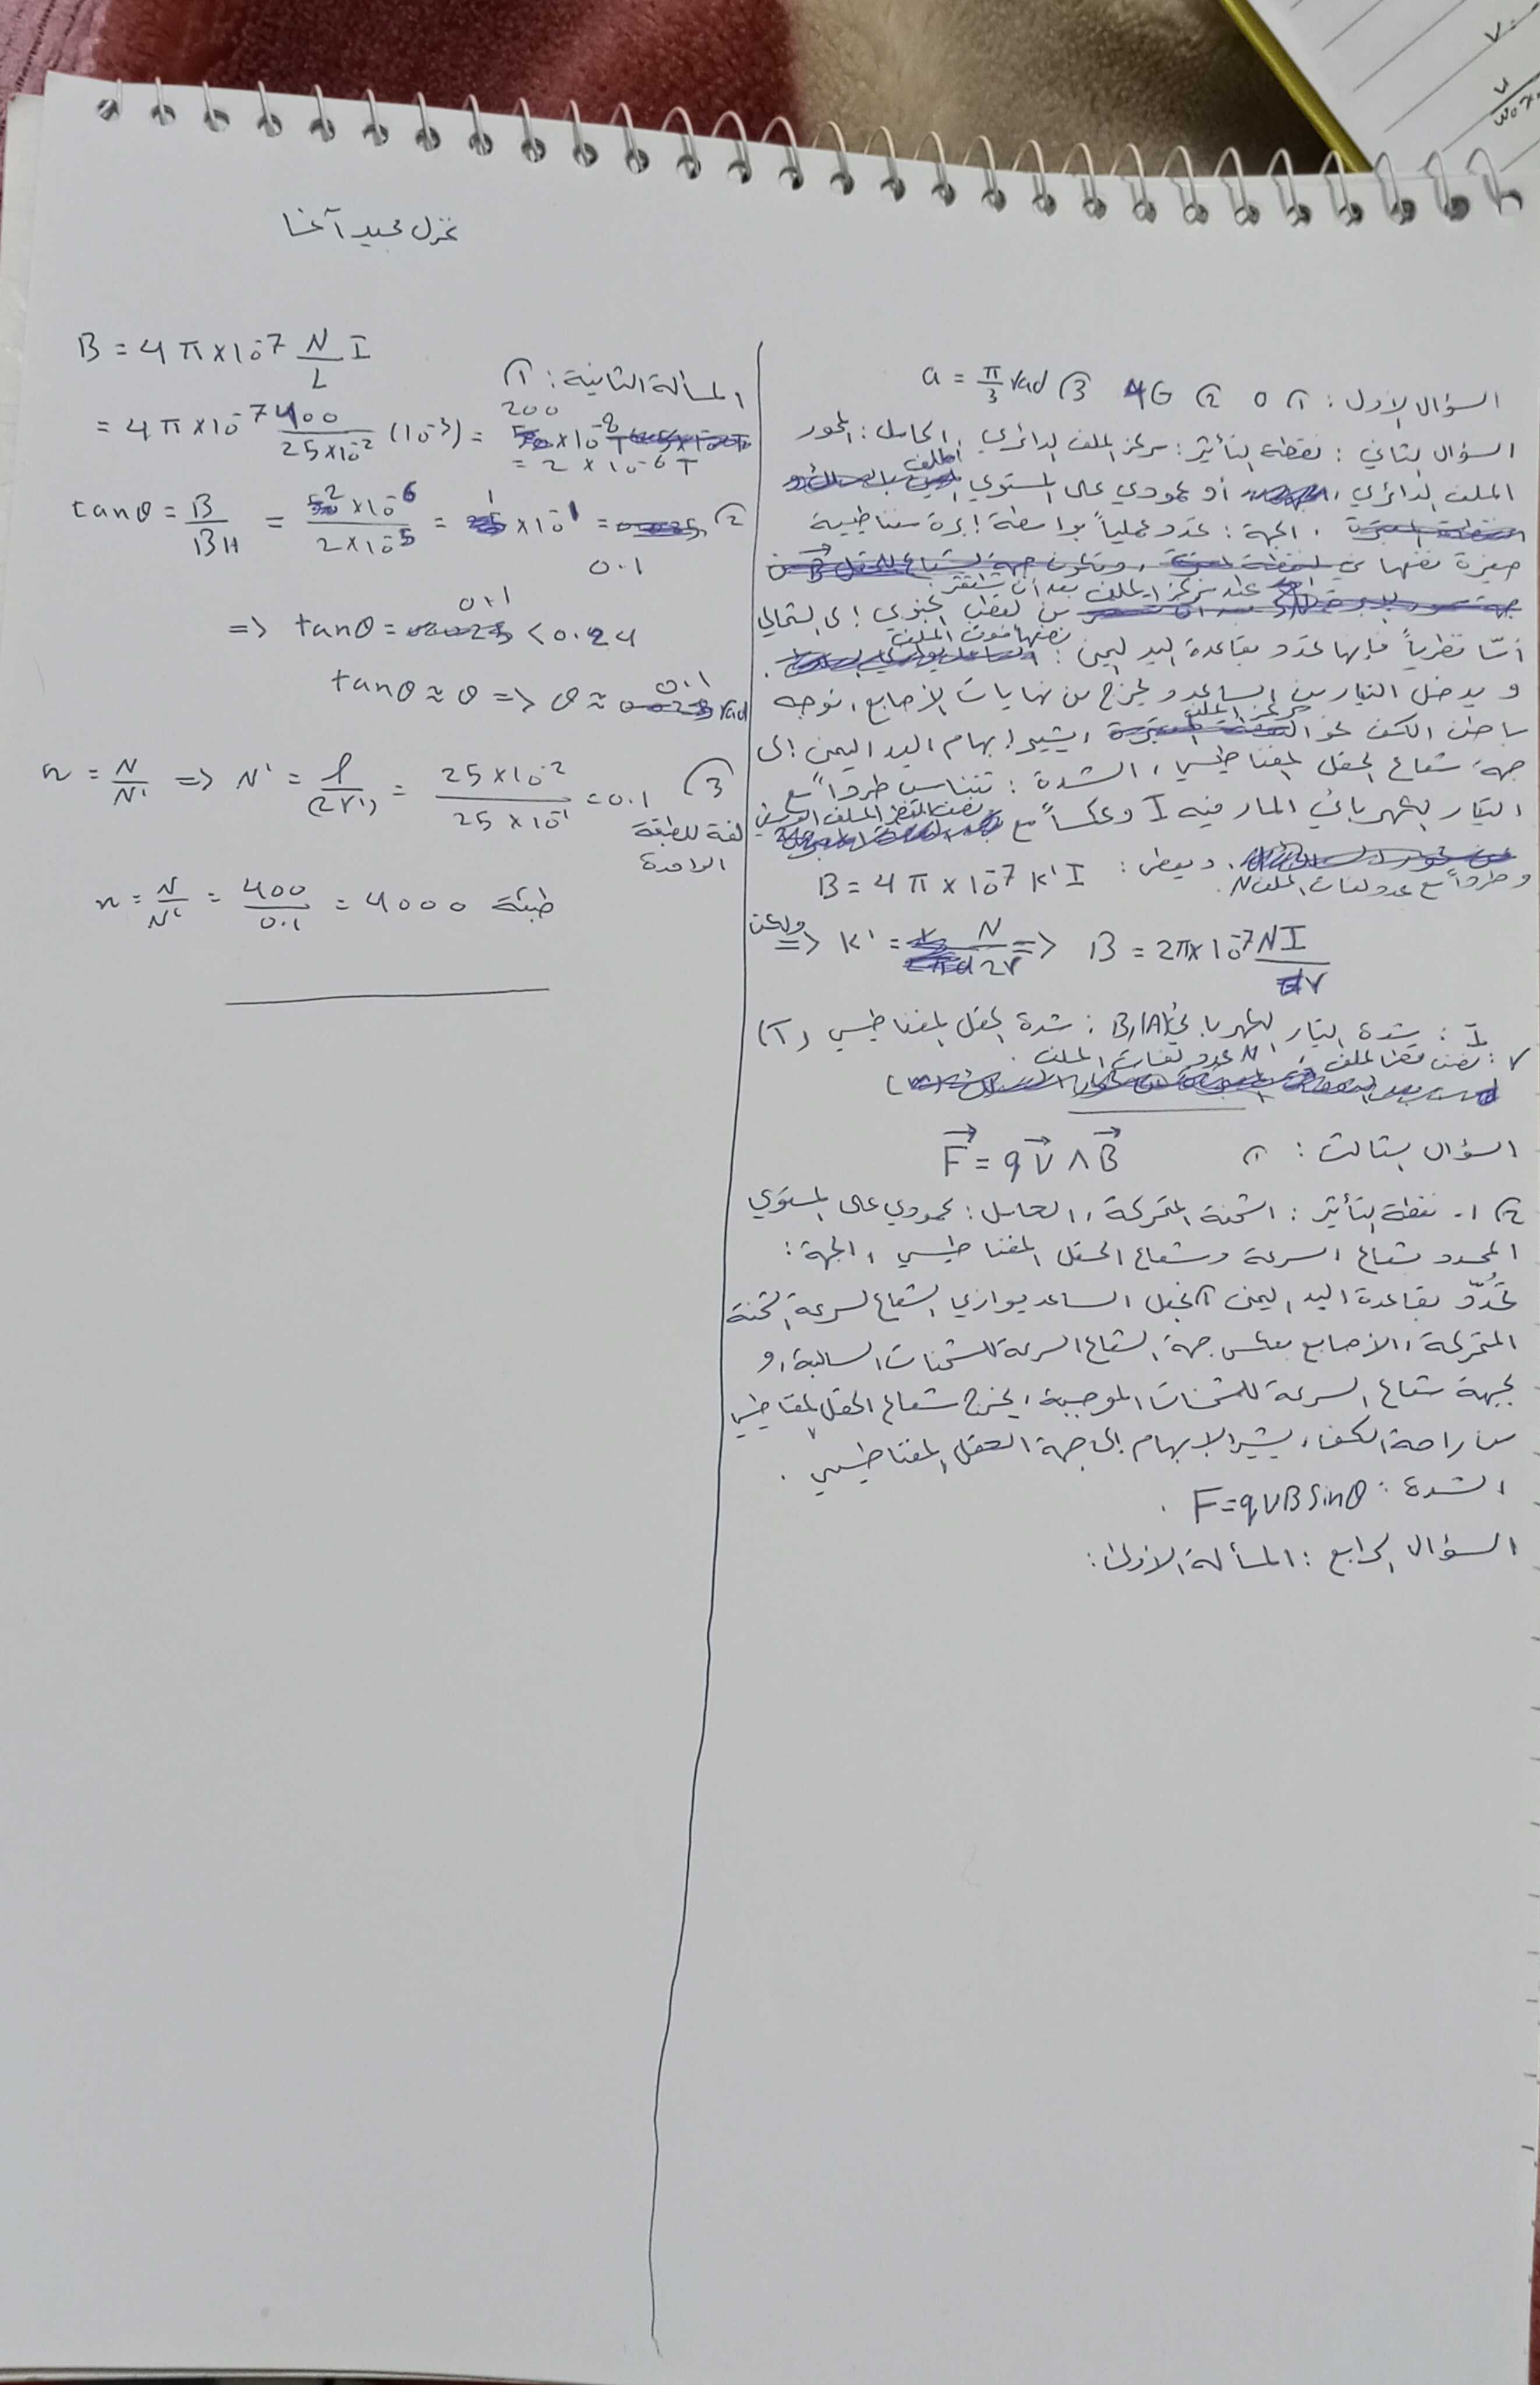 غزل عبيد آغا
السؤال الأول: 1) 0 2) 4G 3) a = π/3 rad
السؤال الثاني: نقطة التأثير: مركز الملف الدائري، الحامل: المحور
الملف الدائري، أو عمودي على المستوي الملف
، الجهة: تحدد عملياً بواسطة إبرة مغناطيسية
صغيرة نضعها في
عند مركز الملف بعد أن تستقر
من القطب الجنوبي إلى الشمالي
أمّا نظرياً فإنها تحدد بقاعدة اليد اليمنى: نضعها فوق الملف
و يدخل التيار من الساعد و يخرج من نهايات الأصابع، نوجه
باطن الكف نحو مركز الملف، يشير إبهام اليد اليمنى إلى
جهة شعاع الحقل المغناطيسي، الشدة: تتناسب طرداً مع
التيار الكهربائي المار فيه I وعكساً مع نصف القطر الملف الوسطي
وطرداً مع عدد لفات الملف N. ويعطى: B = 4π × 10⁻⁷ k' I
ولكن => k' = N/2r => B = 2π × 10⁻⁷ NI/r
I: شدة التيار الكهربائي (A)، B: شدة الحقل المغناطيسي (T)
r: نصف قطر الملف، N عدد لفات الملف.
السؤال الثالث: 1) F⃗ = qv⃗ ∧ B⃗
2) 1- نقطة التأثير: الشحنة المتحركة، الحامل: عمودي على المستوي
المحدد بشعاع السرعة وشعاع الحقل المغناطيسي، الجهة:
تُحدّد بقاعدة اليد اليمنى نجعل الساعد يوازي الشعاع السرعة الشحنة
المتحركة، الأصابع بعكس جهة الشعاع السرعة للشحنات السالبة، و
بجهة شعاع السرعة للشحنات الموجبة، يخرج شعاع الحقل المغناطيسي
من راحة الكف، يشير الإبهام إلى جهة الحقل المغناطيسي.
الشدة: F = qvB sinθ.
السؤال الرابع: المسألة الأولى:
المسألة الثانية: 1)
B = 4π × 10⁻⁷ N/L I
= 4π × 10⁻⁷ 400/25×10⁻² (10⁻³) = 200 × 10⁻⁸ T
= 2 × 10⁻⁶ T
2) tanθ = B/BH = 2 × 10⁻⁶/2 × 10⁻⁵ = 1 × 10⁻¹ = 0.1
=> tanθ = 0.1 < 0.24
tanθ ≈ θ => θ ≈ 0.1 rad
3) n = N/N' => N' = l/(2r') = 25×10⁻²/25×10⁻¹ = 0.1
لفة للطبقة
الواحدة
n = N/N' = 400/0.1 = 4000 طبقة